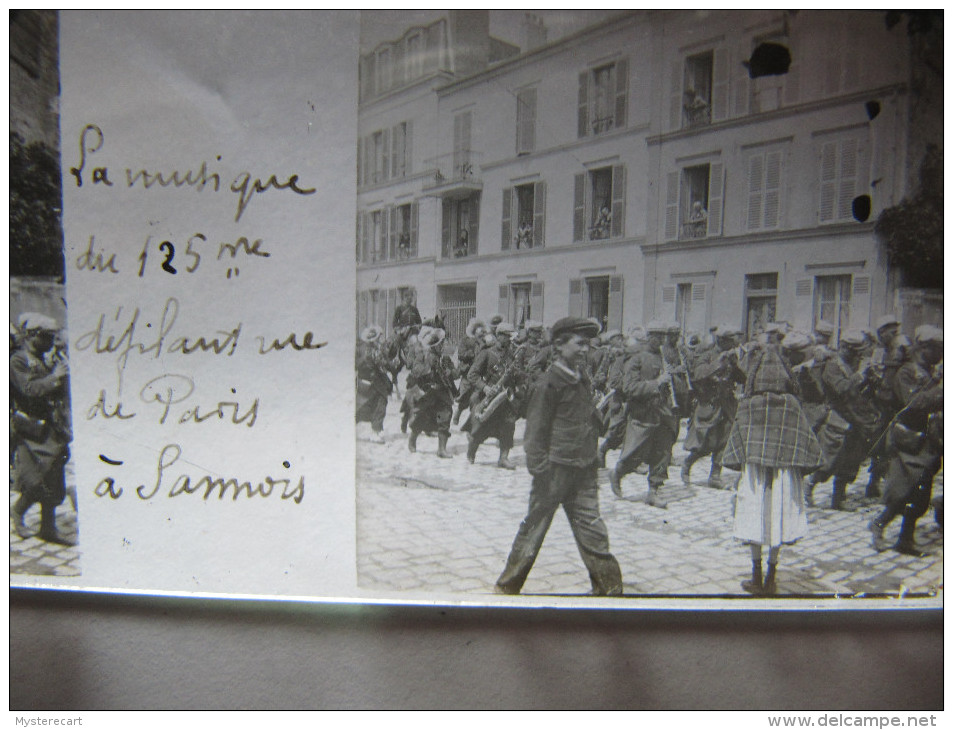 La musique
du 125 me
défilant rue
de Paris
à Sannois
Mysterecart
www.delcampe.net